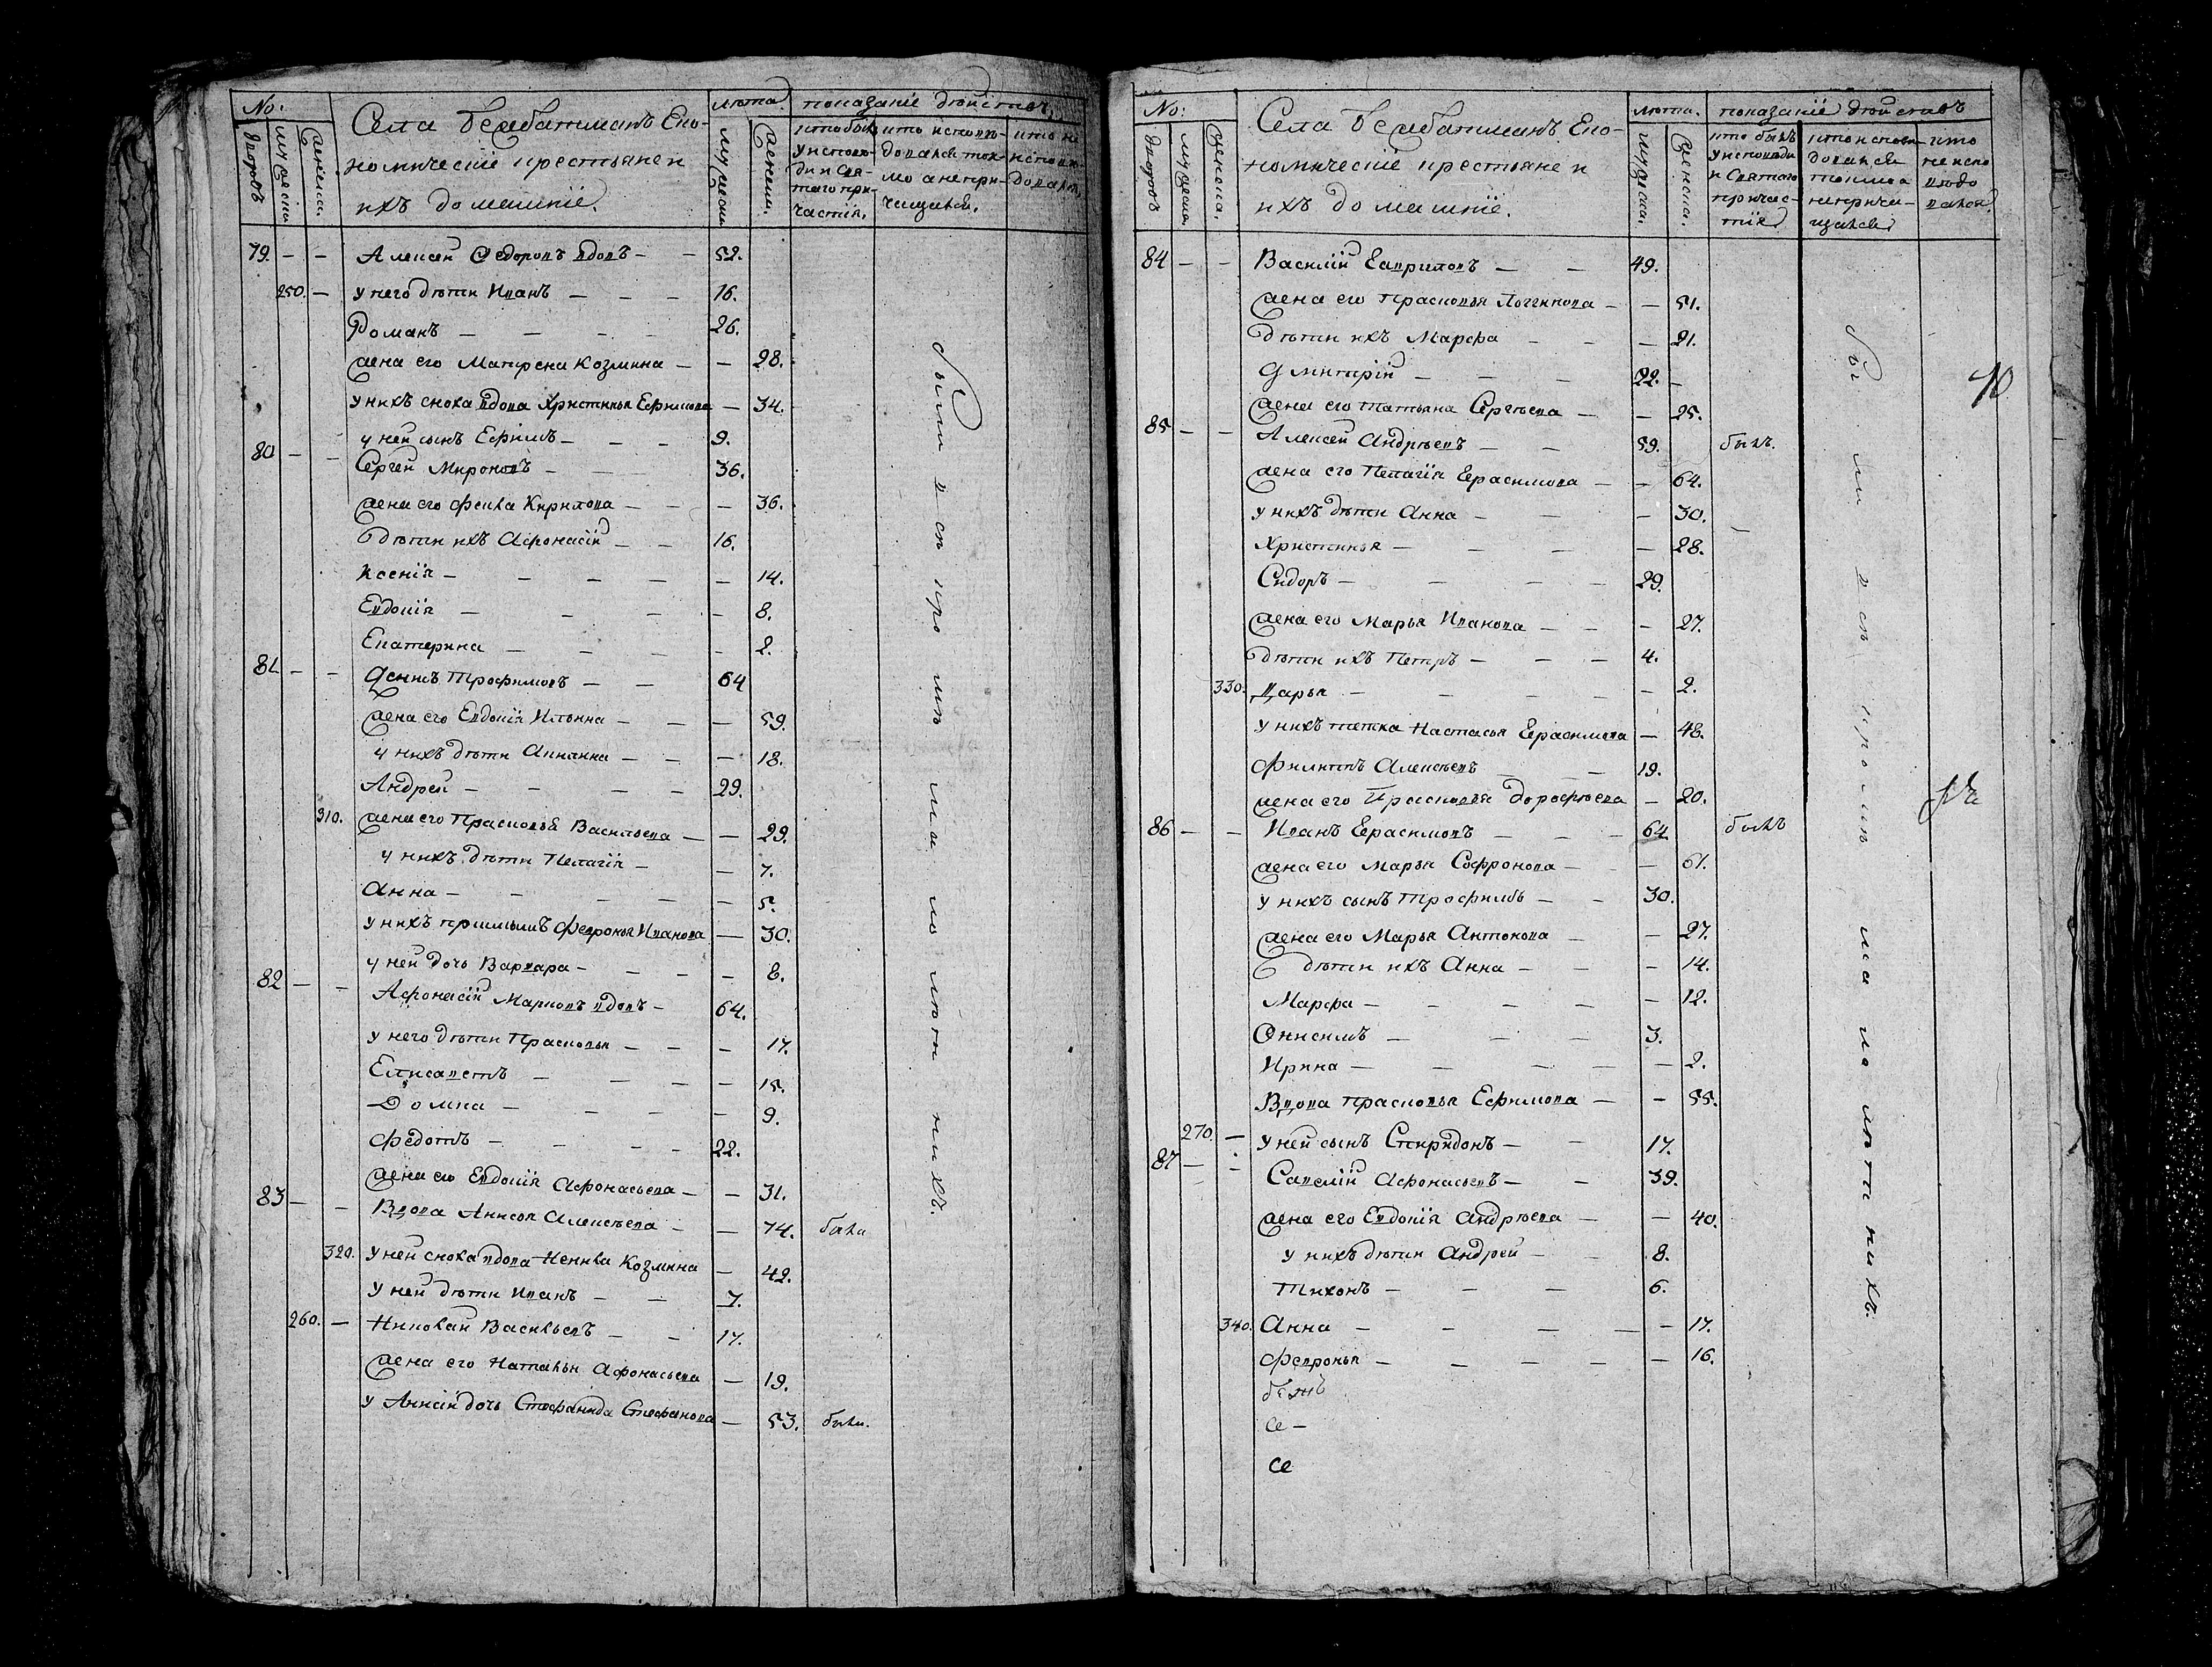 No:
дворовъ
мужеска
женска.
Села Бембатмасъ Еко-
номическіе крестьяне и
ихъ домашніе.
лѣта.
мужеска
женска.
показаніе дѣйствъ,
кто былъ
у исповѣ-
ди и Свя-
таго при-
частія,
кто исповѣ-
дался ток-
мо а непри-
чащался.
кто не
исповѣ-
дался,
79. — — Алексей Федоровъ вдовъ — — 52.
250. — у него дѣти Иванъ — — — 16.
Романъ — — — — 26.
жена его Матрена Козмина — — 28.
у нихъ сноха вдова Христинья Ефимова — 34.
у ней сынъ Ефимъ — — — 9.
80 — — Сергей Мироновъ — — — 36.
жена его Фекла Кирилова — — — 36.
дѣти ихъ Афонасій — — 16.
Ксенія — — — — — 14.
Евдокія — — — — — 8.
Екатерина — — — — — 2.
81 — — Денисъ Трофимовъ — — 64
жена его Евдокія Ильина — — — 59.
у нихъ дѣти — — — 18.
Андрей — — — — 29.
310. жена его Прасковья Васильева — — 29.
у нихъ дѣти Пелагія — — 7.
Анна — — — — — 5.
у нихъ Февронья Иванова — 30.
у ней дочь Варвара — — — — 8.
82 — — Афонасій Марковъ вдовъ — 64.
у него дѣти Прасковья — — — 17.
Елисаветъ — — — — 15.
Домна — — — — — 9.
Федотъ — — — — 22.
жена его Евдокія Афонасьева — — 31.
83 — — Вдова Анисья Алексѣева — — 74. была
320. у ней сноха вдова Ненила Козмина — 42.
у ней дѣти Иванъ — — 7.
260. — Николай Васильевъ — — 17.
жена его Наталья Афонасьева — 19.
у Анисіи дочь Стефанида Стефанова — 53. были.
были в съ кро мѣ ма ло лѣт нихъ.
No:
дворовъ
мужеска.
женска.
Села Бембатмасъ Еко-
номическіе крестьяне и
ихъ домашніе.
лѣта.
мужеска.
женска.
показаніе дѣйствъ
кто былъ
у исповѣди
и Святаго
причас-
тія
кто исповѣ-
дался
токмо а
неприча-
щался
кто
не испо
вѣдо
вался
84 — — Василій Гавриловъ — — 49.
жена его Прасковья Логгинова — — 51.
дѣти ихъ Марфа — — — 21.
Дмитрій — — — 22. —
10
жена его Татьяна Сергѣева — — 25.
85 — — Алексей Андрѣевъ — — 59. былъ.
жена его Пелагія Герасимова — — 64.
у нихъ дѣти Анна — — — 30.
Христинья — — — — 28.
Сидоръ — — — — 29.
жена его Марья Иванова — — — 27.
дѣти ихъ Петръ — — — 4.
330. Дарья — — — — — 2.
у нихъ тетка Настасья Герасимова — 48.
Филиппъ Алексѣевъ — — 19.
жена его Прасковья Дорофѣева — 20.
86 — — Иванъ Герасимовъ — — — 64 былъ
жена его Марья Софронова — — 61.
у нихъ сынъ Трофимъ — — 30.
жена его Марья Антонова — — 27.
дѣти ихъ Анна — — — 14.
Марфа — — — — — 12.
Онисимъ — — — 3.
Ирина — — — — — 2.
Вдова Прасковья Ефимова — — 55.
270. — у ней сынъ Спиридонъ — — 17.
87 — — Савелій Афонасьевъ — — 39.
жена его Евдокія Андрѣева — — 40.
у нихъ дѣти Андрей — — 8.
Тихонъ — — — 6.
340. Анна — — — — — 17.
Февронья — — — — — 16.
се —
се
бы ли в съ кро мѣ ма ло лѣт нихъ.